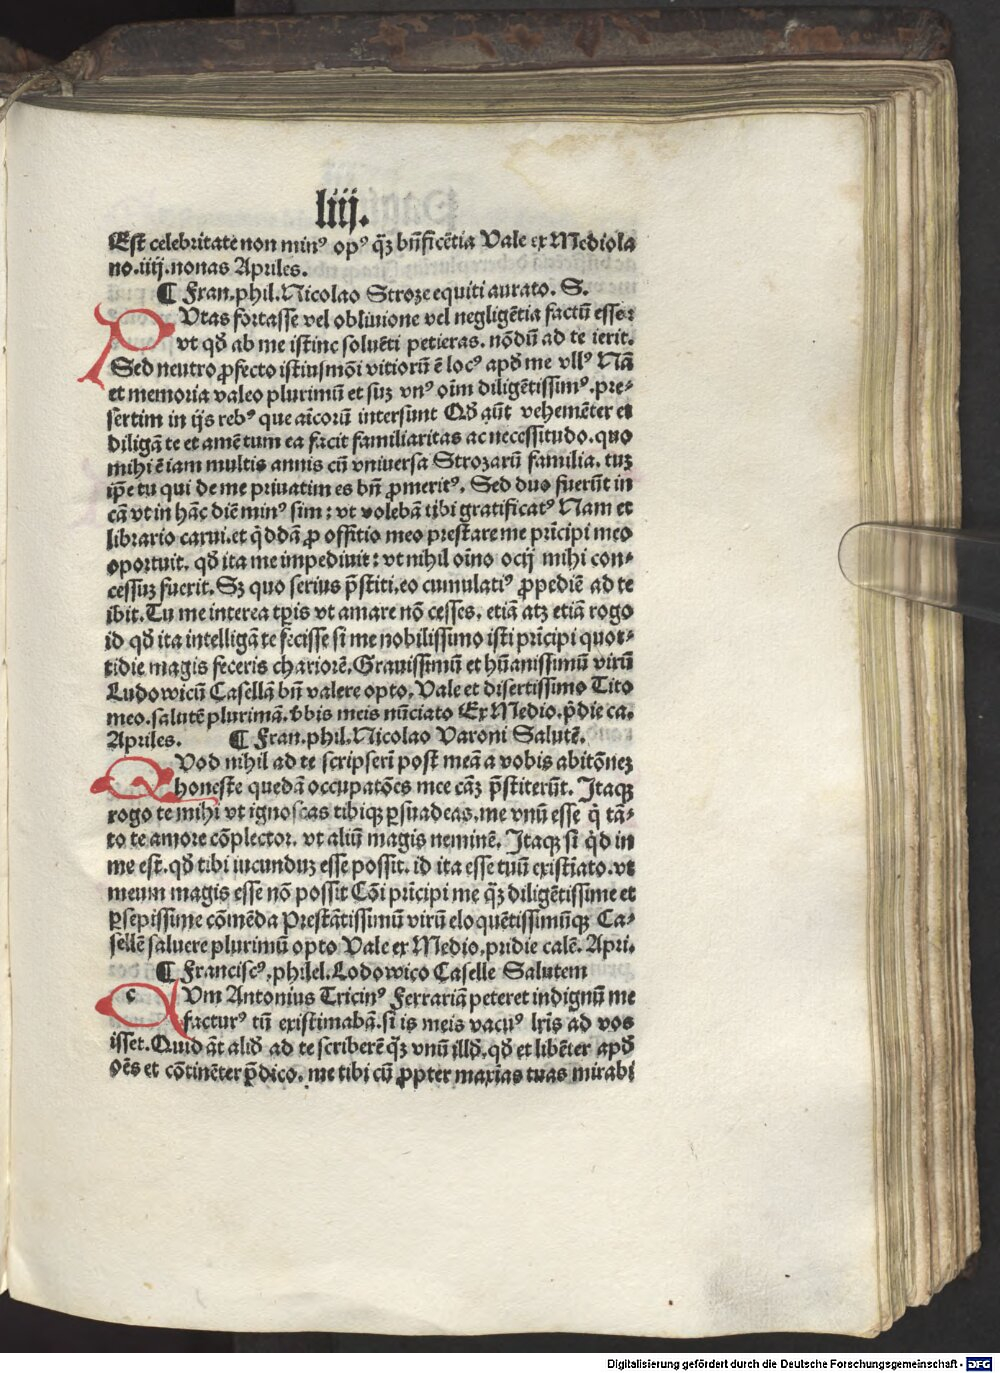 liij.
Est celebritate non minꝰ opꝰ q̄ꝫ bn̄ficētia Vale ex Mediola
no.iiij.nonas Apriles.
¶ Fran.phil.Nicolao Stroze equiti aurato. S.
PVtas fortasse vel obliuione vel negligētia factū esse:
vt qđ ab me istinc soluēti petieras. nōdū ad te ierit.
Sed neutro ꝓfecto istiusmōi vitiorū ē locꝰ apđ me vllꝰ Nā
et memoria valeo plurimū et suꝫ vnꝰ oīm diligētissimꝰ.pre⸗
sertim in ijs rebꝰ que aīcorū intersunt Qđ aūt vehemēter et
diligā te et amē tum ea facit familiaritas ac necessitudo.quo
mihi ē iam multis annis cū vniuersa Strozarū familia. tuꝫ
ip̄e tu qui de me priuatim es bn̄ ꝓmeritꝰ. Sed duo fuerūt in
cā vt in hāc diē minꝰ sim: vt volebā tibi gratificatꝰ Nam et
librario carui.et q̄ddā ꝓ offitio meo prestare me prīcipi meo
oportuit. qđ ita me impediuit: vt nihil oīno ocij mihi con⸗
cessuꝫ fuerit. Sꝫ quo serius p̄stiti.eo cumulatiꝰ ꝓpediē ad te
ibit.Tu me interea tp̄is vt amare nō cesses. etiā atꝫ etiā rogo
id qđ ita intelligā te fecisse si me nobilissimo isti prīcipi quot⸗
tidie magis feceris chariorē.Grauissimū et hūanissimū virū
Ludowicū Casellā bn̄ valere opto. Vale et disertissimo Tito
meo.salutē plurimā.v̄bis meis nūciato Ex Medio.p̄die ca.
Apriles. ¶ Fran.phil.Nicolao Varoni Salutē.
QVod nihil ad te scripseri post meā a vobis abitōneꝫ
honeste quedā occupatōes mee cāꝫ p̄stiterūt. Itaqꝫ
rogo te mihi vt ignoscas tibiqꝫ ꝑsuadeas.me vnū esse q̄ tā⸗
to te amore cōplector. vt aliū magis neminē. Itaqꝫ si q̄d in
me est.qđ tibi iucunduꝫ esse possit. id ita esse tuū existīato.vt
meum magis esse nō possit Cōi prīcipi me q̄ꝫ diligētissime et
ꝑsepissime cōmēda Prestātissimū virū eloquētissimūqꝫ Ca⸗
sellē saluere plurimū opto Vale ex Medio.pridie calē. Apri.
¶ Franciscꝰ.philel.Lodowico Caselle Salutem
cVm Antonius Tricinꝰ Ferrariā peteret indignū me
facturꝰ tū existimabā.si is meis vacuꝰ lr̄is ad vos
isset.Quid āt aliđ ad te scriberē q̄ꝫ vnū illđ.qđ et libēter apđ
oēs et cōtinēter p̄dico. me tibi cū ꝓpter maxīas tuas mirabi
Digitalisierung gefördert durch die Deutsche Forschungsgemeinschaft - DFG